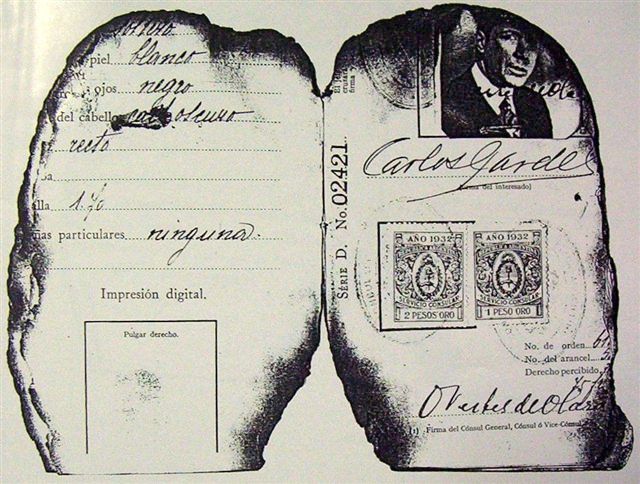 soltero
piel blanco
ojos negro
del cabello cast. oscuro
recto
alla 1.70
ñas particulares ninguna.
Impresión digital.
Pulgar derecho.
SÉRIE D. No. 02421
Carlos Gardel
(Firma del interesado)
AÑO 1932
REPUBLICA ARGENTINA
SERVICIO CONSULAR
2 PESOS ORO
AÑO 1932
REPUBLICA ARGENTINA
SERVICIO CONSULAR
1 PESO ORO
No. de orden
No. del arancel
Derecho percibido
(1) Firma del Cónsul General, Cónsul ó Vice-Cónsul